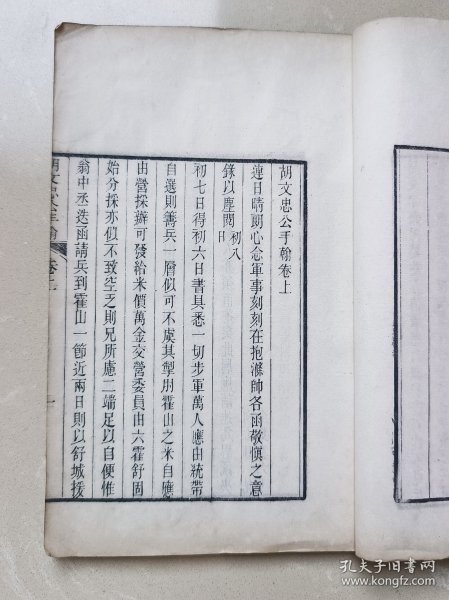 胡文忠公手翰卷上
連日晴朗心念軍事刻刻在抱滌帥各函敬慎之意
錄以塵閱初八日
初七日得初六日書具悉一切步軍萬人應由統帶
自選則籌兵一層似可不虞其掣肘霍山之米自應
由營採辦可發給米價萬金交營委員由六霍舒固
始分採亦似不致空乏則兄所慮二端足以自便惟
翁中丞迭函請兵到霍山一節近兩日則以舒城援
胡文忠公手翰 卷上 一
孔夫子旧书网
www.kongfz.com